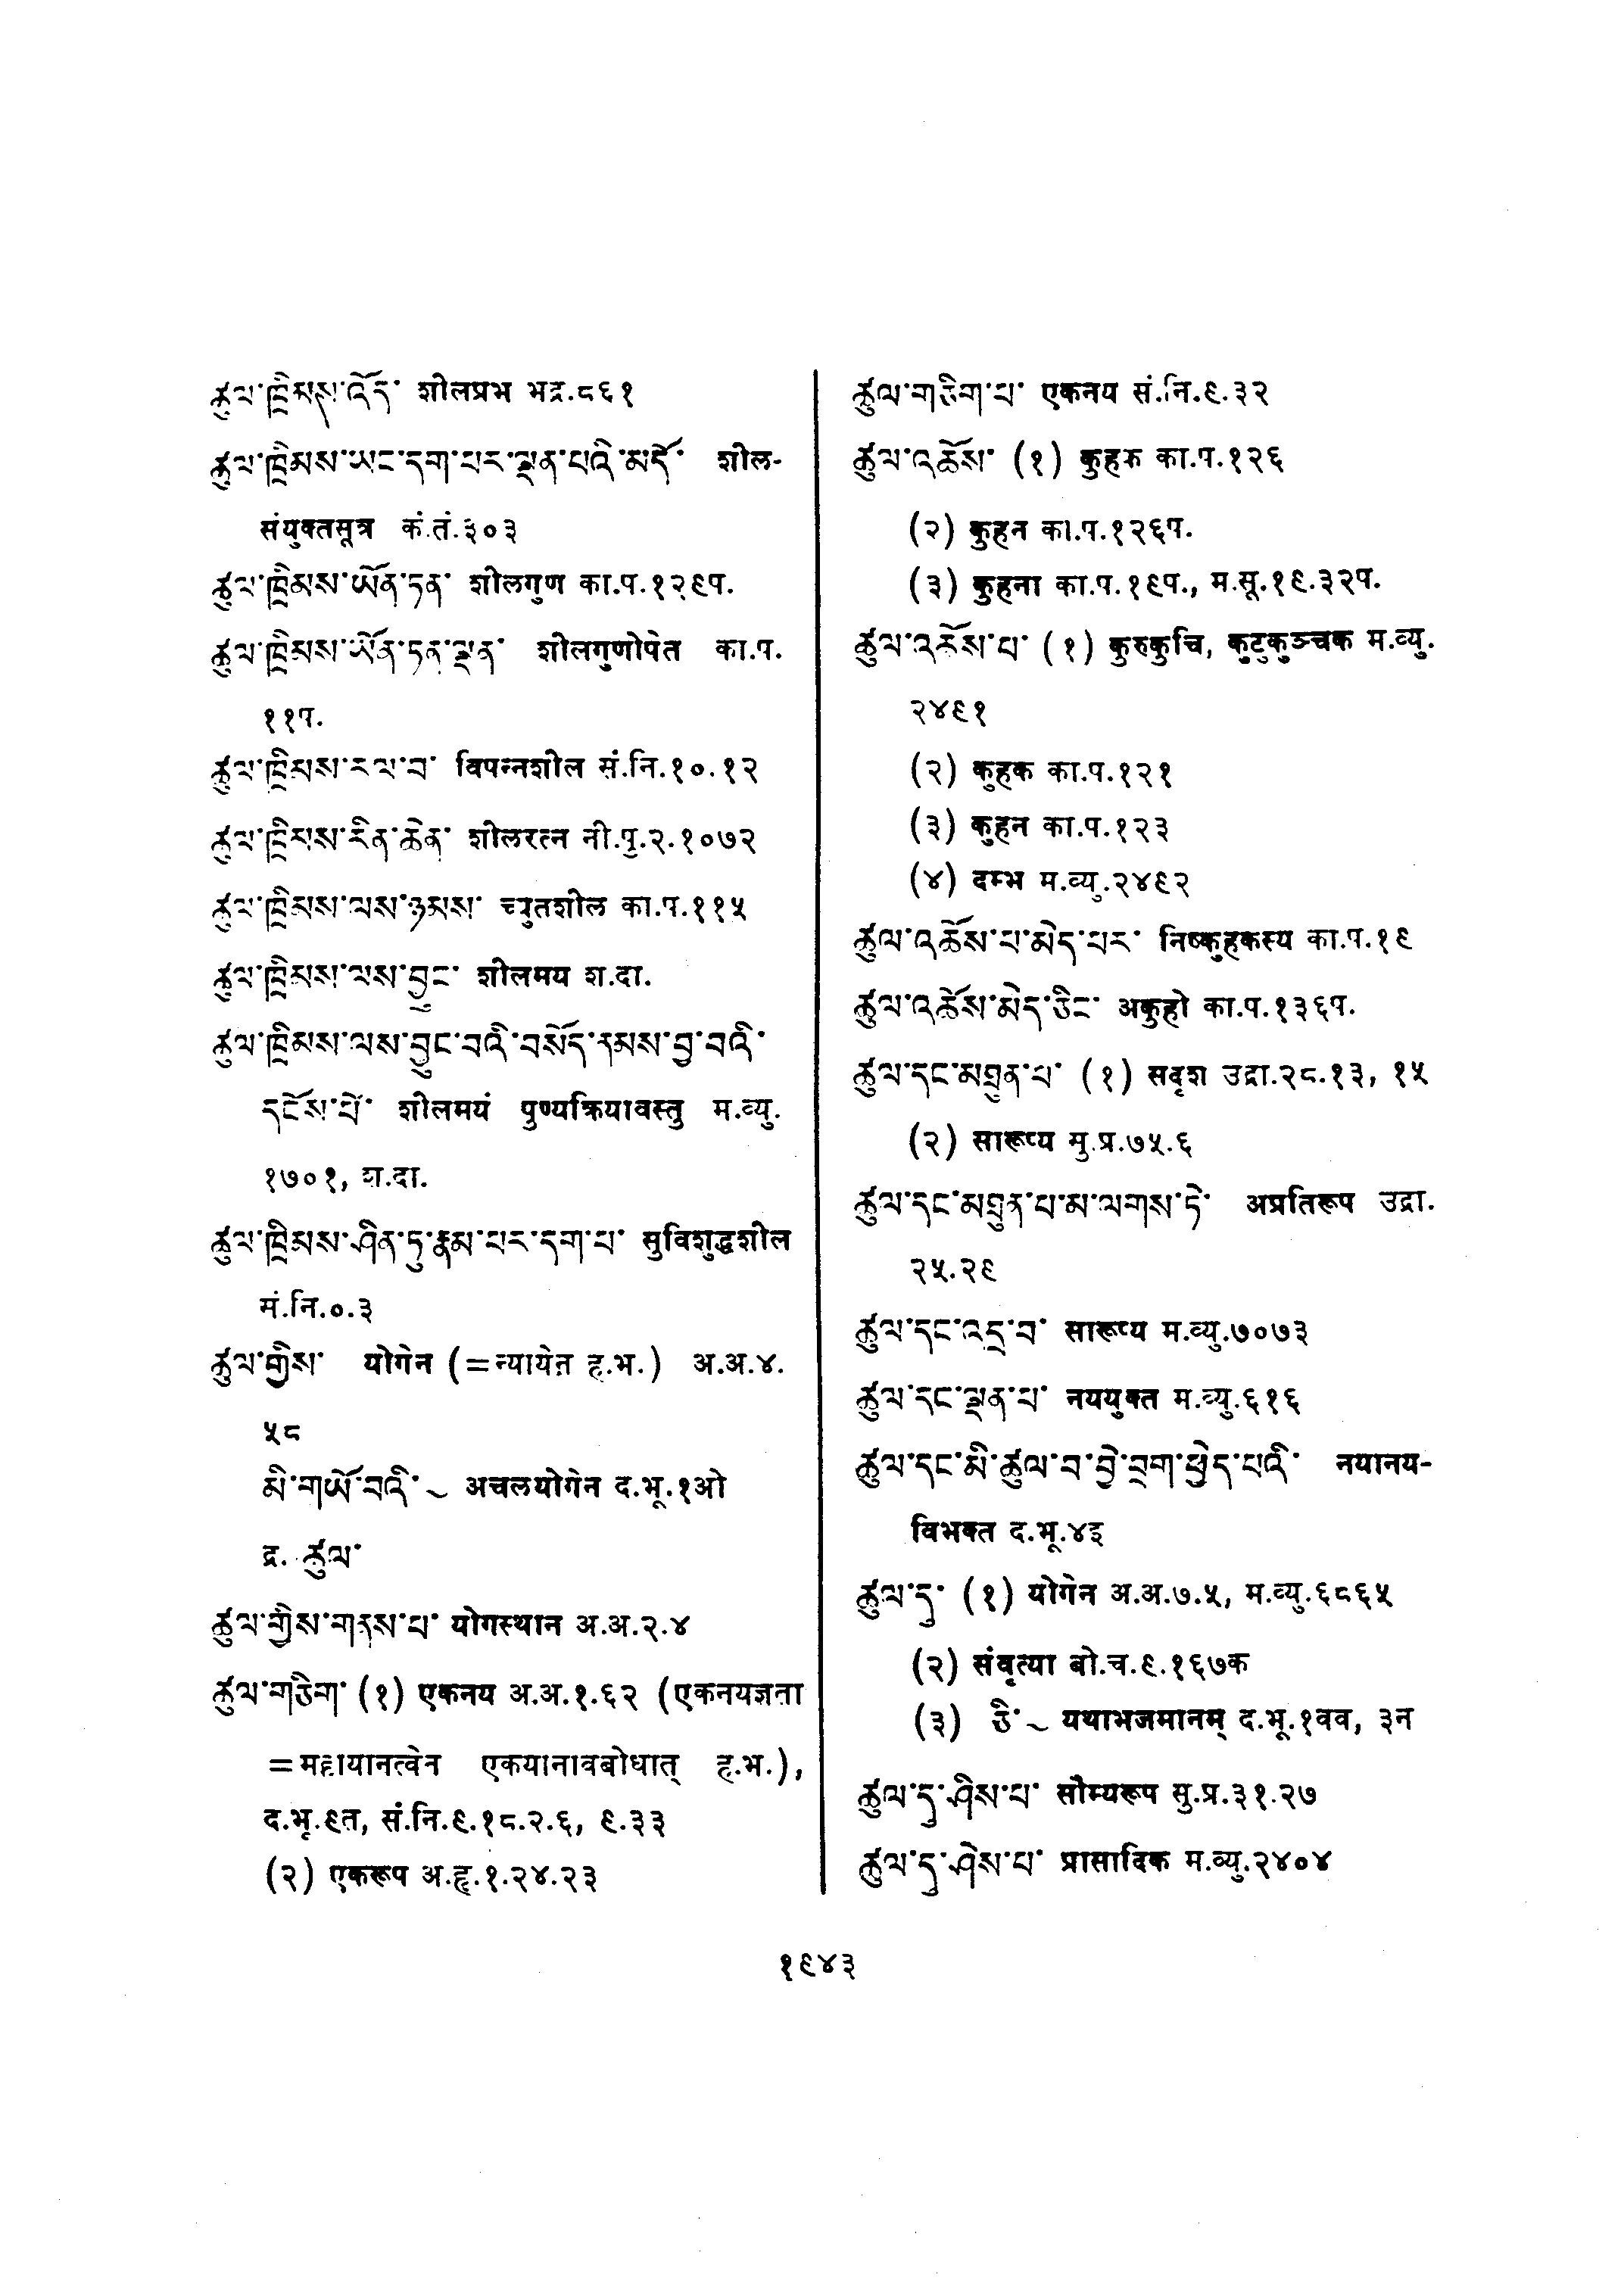 ཚུལ་ཁྲིམས་འོད་ शीलप्रभ भद्र.८६१
ཚུལ་ཁྲིམས་ཡང་དག་པར་ལྡན་པའི་མདོ་ शील-
संयुक्तसूत्र कं.तं.३०३
ཚུལ་ཁྲིམས་ཡོན་ཏན་ शीलगुण का.प.१२९प.
ཚུལ་ཁྲིམས་ཡོན་ཏན་ལྡན་ शीलगुणोपेत का.प.
११प.
ཚུལ་ཁྲིམས་རལ་བ་ विपन्नशील सं.नि.१०.१२
ཚུལ་ཁྲིམས་རིན་ཆེན་ शीलरत्न नी.पु.२.१०७२
ཚུལ་ཁྲིམས་ལས་ཉམས་ च्युतशील का.प.११५
ཚུལ་ཁྲིམས་ལས་བྱུང་ शीलमय श.दा.
ཚུལ་ཁྲིམས་ལས་བྱུང་བའི་བསོད་ནམས་བྱ་བའི་
དངོས་པོ་ शीलमयं पुण्यक्रियावस्तु म.व्यु.
१७०१, श.दा.
ཚུལ་ཁྲིམས་ཤིན་ཏུ་རྣམ་པར་དག་པ་ सुविशुद्धशील
मं.नि.०.३
ཚུལ་གྱིས་ योगेन (=न्यायेन ह.भ.) अ.अ.४.
५८
མི་གཡོ་བའི་~ अचलयोगेन द.भू.१ओ
द्र. ཚུལ་
ཚུལ་གྱིས་གནས་པ་ योगस्थान अ.अ.२.४
ཚུལ་གཅིག་ (१) एकनय अ.अ.१.६२ (एकनयज्ञता
=महायानत्वेन एकयानावबोधात् ह.भ.),
द.भू.९त, सं.नि.९.१८.२.६, ९.३३
(२) एकरूप अ.हृ.१.२४.२३
ཚུལ་གཅིག་པ་ एकनय सं.नि.९.३२
ཚུལ་འཆོས་ (१) कुहक का.प.१२६
(२) कुहन का.प.१२६प.
(३) कुहना का.प.१९प., म.सू.१९.३२प.
ཚུལ་འཆོས་པ་ (१) कुरुकुचि, कुटुकुञ्चक म.व्यु.
२४९१
(२) कुहक का.प.१२१
(३) कुहन का.प.१२३
(४) दम्भ म.व्यु.२४९२
ཚུལ་འཆོས་པ་མེད་པར་ निष्कुहकस्य का.प.१९
ཚུལ་འཆོས་མེད་ཅིང་ अकुहो का.प.१३६प.
ཚུལ་དང་མཐུན་པ་ (१) सदृश उद्रा.२८.१३, १५
(२) सारूप्य मु.प्र.७५.६
ཚུལ་དང་མཐུན་པ་མ་ལགས་ཏེ་ अप्रतिरूप उद्रा.
२५.२९
ཚུལ་དང་འདྲ་བ་ सारूप्य म.व्यु.७०७३
ཚུལ་དང་ལྡན་པ་ नययुक्त म.व्यु.६१६
ཚུལ་དང་མི་ཚུལ་བ་བྱེ་བྲག་ཕྱེད་པའི་ नयानय-
विभक्त द.भू.४इ
ཚུལ་དུ་ (१) योगेन अ.अ.७.५, म.व्यु.६८६५
(२) संवृत्या बो.च.९.१६७क
(३) ཅི་~ यथाभजमानम् द.भू.१वव, ३न
ཚུལ་དུ་ཤིས་པ་ सौम्यरूप सु.प्र.३१.२७
ཚུལ་དུ་ཤེས་པ་ प्रासादिक म.व्यु.२४०४
१९४३